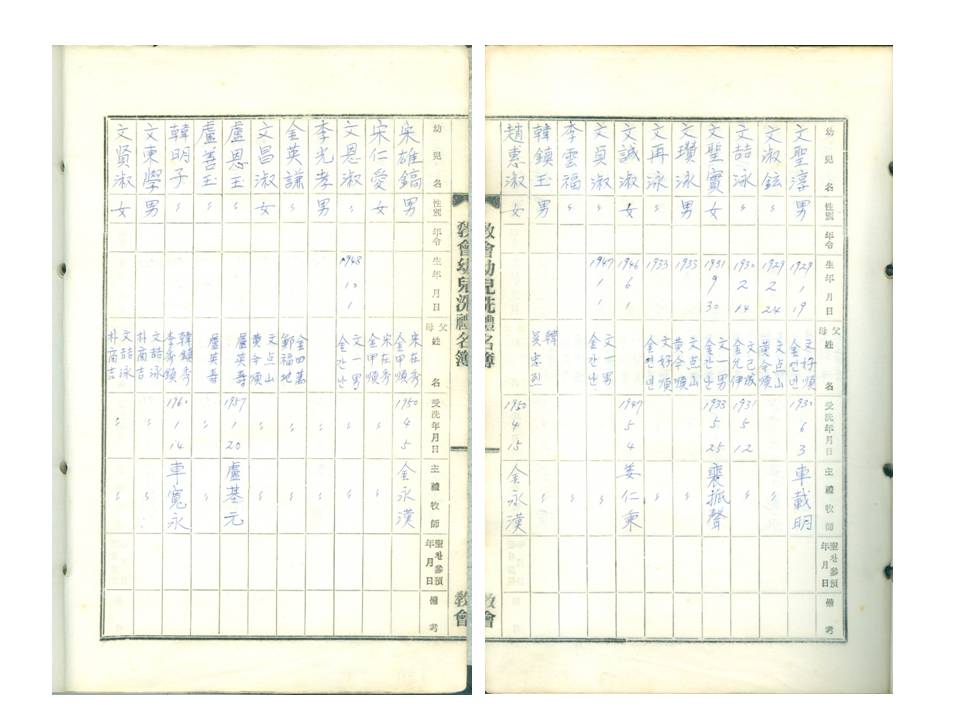 幼兒名
性別
年令
生年月日
父母姓名
受洗年月日
主禮牧師
聖찬參預年月日
備考
文聖淳 男 1929 1 19 文好順 1930 6 3 車載明
文淑鉉 〃 1929 2 24 文点山 黃今順 〃 〃
文喆泳 〃 1930 2 14 文己成 金允伊 1931 5 12 〃
文聖寶 女 1931 9 30 文一男 金간난 1933 5 25 裵振聲
文瓚泳 男 1933 文点山 黃今順 〃 〃
文再泳 〃 1933 文好順 〃 〃
文誠淑 女 1946 6 1 〃 1947 5 4 姜仁秉
文貞淑 〃 1947 1 1 文一男 金간난 〃 〃
李雲福 〃 〃 〃
韓鎮玉 男 韓 吳忠烈 〃 〃
趙惠淑 女 1950 4 15 金永漢
教會幼兒洗禮名簿
教會
教會幼兒洗禮名簿
教會
幼兒名
性別
年令
生年月日
父母姓名
受洗年月日
主禮牧師
聖찬參預年月日
備考
宋雄鎬 男 宋在秀 金甲順 1950 4 5 金永漢
宋仁愛 女 宋在秀 金甲順 〃 〃
文恩淑 〃 1948 10 1 文一男 金간난 〃 〃
李光孝 男 〃 〃
金英謙 〃 金四萬 鄭福地 〃 〃
文昌淑 女 文点山 黃今順 〃 〃
盧恩玉 〃 盧英壽 1957 1 20 盧基元
盧善玉 〃 盧英壽 〃 〃
韓明子 〃 韓鎮秀 李秀順 1960 1 14 車寬永
文東學 男 文喆泳 朴商吉 〃 〃
文賢淑 女 文喆泳 朴商吉 〃 〃